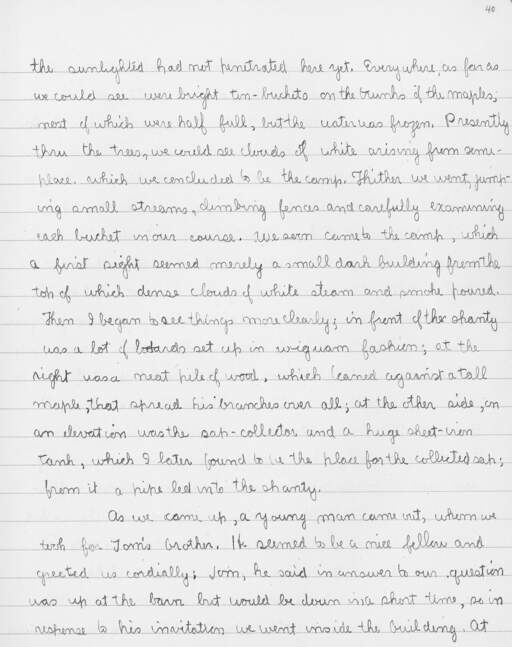 40
the sunlighted had not penetrated here yet. Everywhere, as far as
we could see were bright tin-buckets on the trunks of the maples;
most of which were half full, but the water was frozen. Presently
thru the trees, we could see clouds of white arising from some-
place. which we concluded to be the camp. Thither we went, jump-
ing small streams, climbing fences and carefully examining
each bucket in our course. We soon came to the camp, which
a first sight seemed merely a small dark building from the
top of which dense clouds of white steam and smoke poured.
Then I began to see things more clearly; in front of the shanty
was a lot of boards set up in wigwam fashion; at the
right was a neat pile of wood, which leaned against a tall
maple, that spread his branches over all; at the other side, on
an elevation was the sap-collector and a huge sheet-iron
tank, which I later found to be the place for the collected sap;
from it a pipe led into the shanty.
As we came up, a young man came out, whom we
took for Tom's brother. He seemed to be a nice fellow and
greeted us cordially; Tom, he said in answer to our question
was up at the barn but would be down in a short time, so in
response to his invitation we went inside the building. At